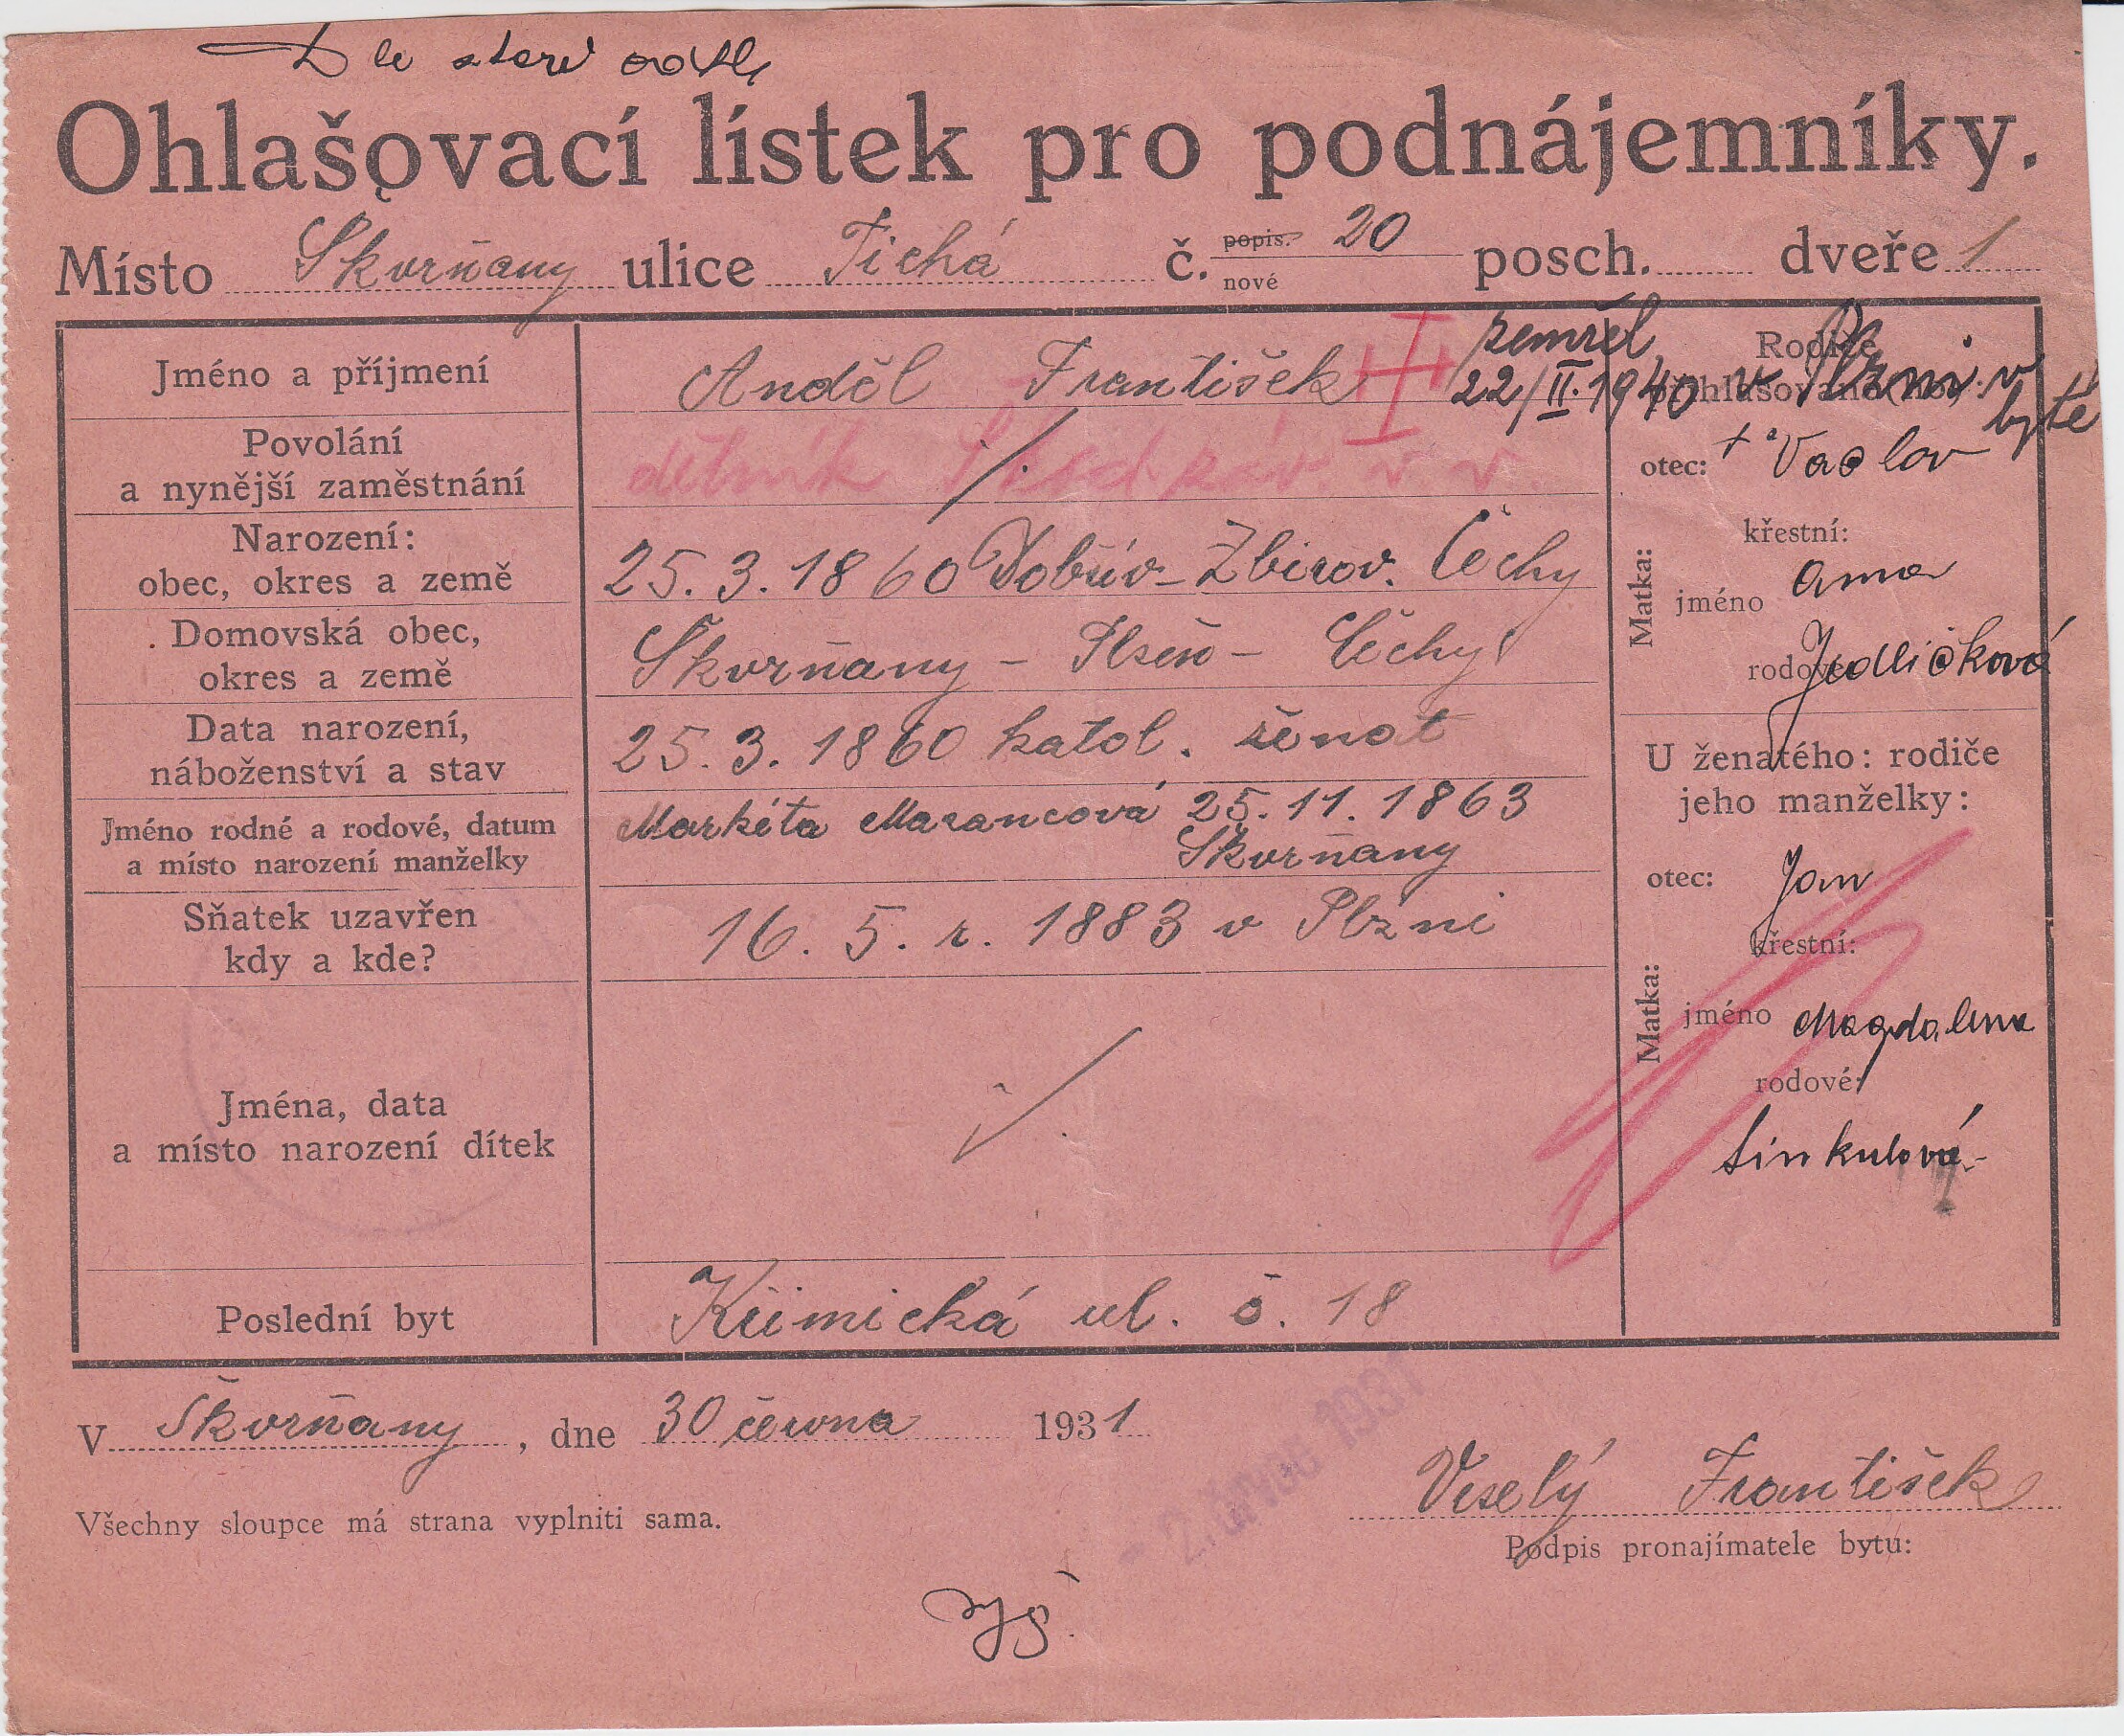 Dle staré
Ohlašovací lístek pro podnájemníky.
Místo Skvrňany ulice Tichá č. popis. nové 20 posch. dveře 1
Jméno a příjmení
Anděl František
zemřel
22/II. 1940 v Plzni v
bytě
Povolání
a nynější zaměstnání
dělník Škod. záv. v. v.
Narození:
obec, okres a země
25. 3. 1860 Dobřív - Zbirov. Čechy
Domovská obec,
okres a země
Škvrňany - Plzeň - Čechy
Data narození,
náboženství a stav
25. 3. 1860 katol. ženat
Jméno rodné a rodové, datum
a místo narození manželky
Markéta Marancová 25. 11. 1863
Škvrňany
Sňatek uzavřen
kdy a kde?
16. 5. r. 1883 v Plzni
Jména, data
a místo narození dítek
Poslední byt
Křimická ul. č. 18
Rodiče
přihlašované(ho):
otec: + Vaclav
Matka:
křestní:
jméno Anna
rodové: Jedličková
U ženatého: rodiče
jeho manželky:
otec: Jan
Matka:
křestní:
jméno Magdalena
rodové:
Sinkulová
V Škvrňany, dne 30 června 1931
- 2. ČRVCE 1931
Veselý František
Všechny sloupce má strana vyplniti sama.
Podpis pronajímatele bytu: